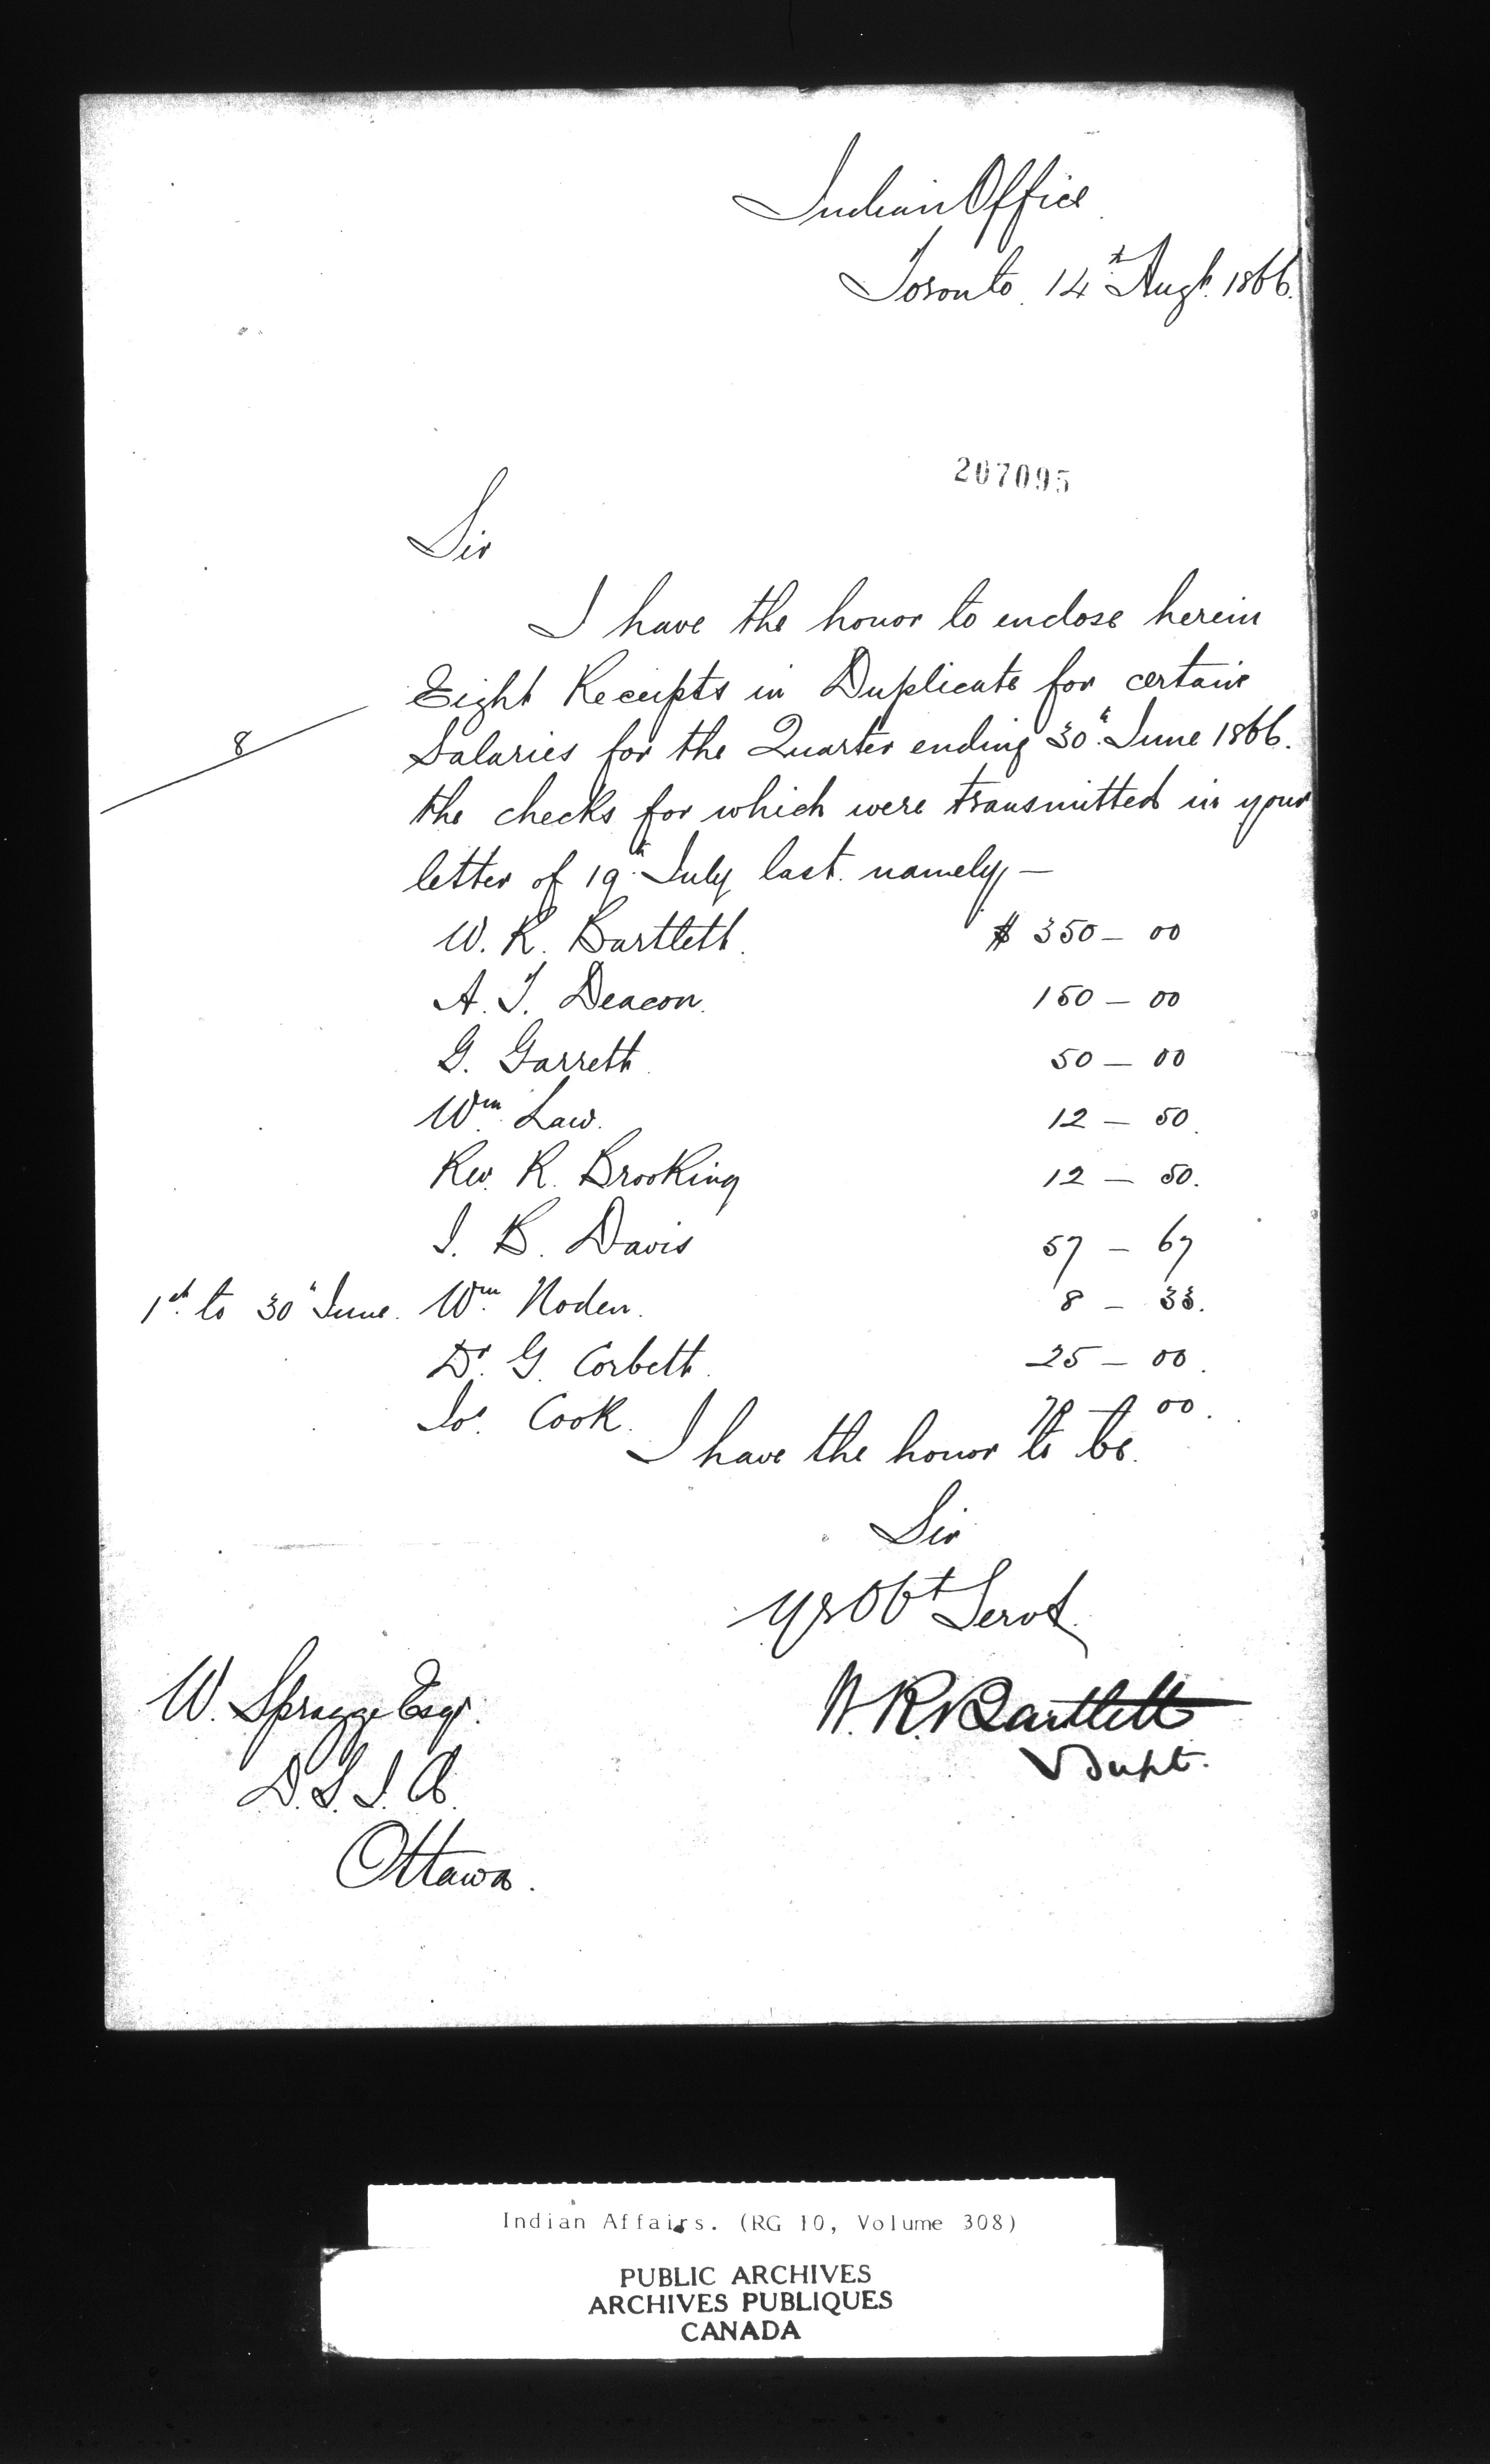 Indian Office
Toronto 14th Augt. 1866.
207095
Sir
I have the honor to enclose herein
Eight Receipts in Duplicate for certain
8
Salaries for the Quarter ending 30th June 1866.
the checks for which were transmitted in your
letter of 19th July last. namely —
W. R. Bartlett. $ 350 — 00
A. T. Deacon. 150 — 00
G. Garrett. 50 — 00
Wm. Law. 12 — 50.
Rev. R. Brooking 12 — 50.
J. B. Davis 57 — 67
1st. to 30th June. Wm. Noden. 8 — 33.
Dr. G. Corbett. 25 — 00.
Jos. Cook. — 00.
I have the honor to be.
Sir
Yr Obt Servt.
W. R. Bartlett
Supt.
W. Spragge Esqr.
D. S. I. A.
Ottawa.
Indian Affairs. (RG 10, Volume 308)
PUBLIC ARCHIVES
ARCHIVES PUBLIQUES
CANADA